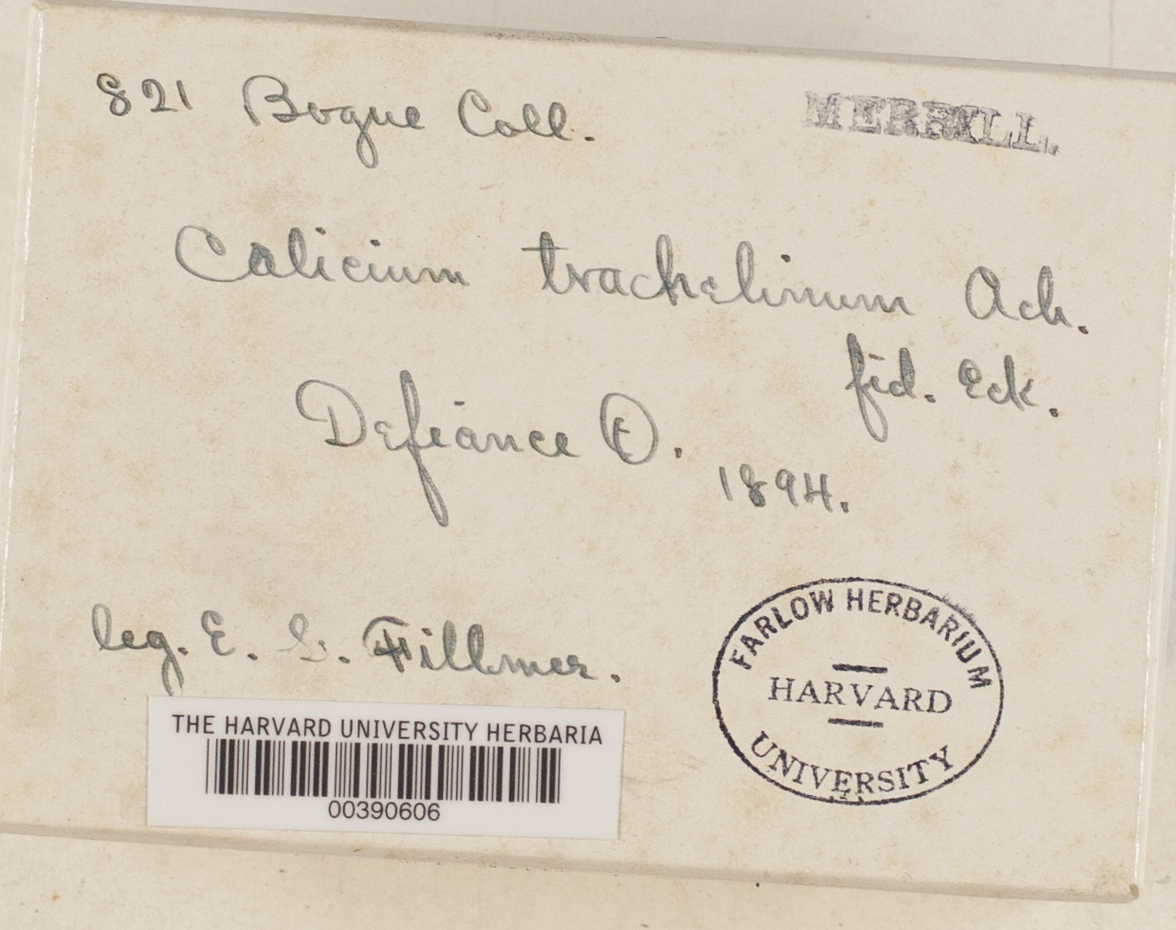 821 Bogue Coll.
MERRILL.
Calicium trachelinum Ach.
fid. Eck.
Defiance O.
1894.
leg. E. E. Fillmer.
THE HARVARD UNIVERSITY HERBARIA
00390606
FARLOW HERBARIUM
HARVARD
UNIVERSITY